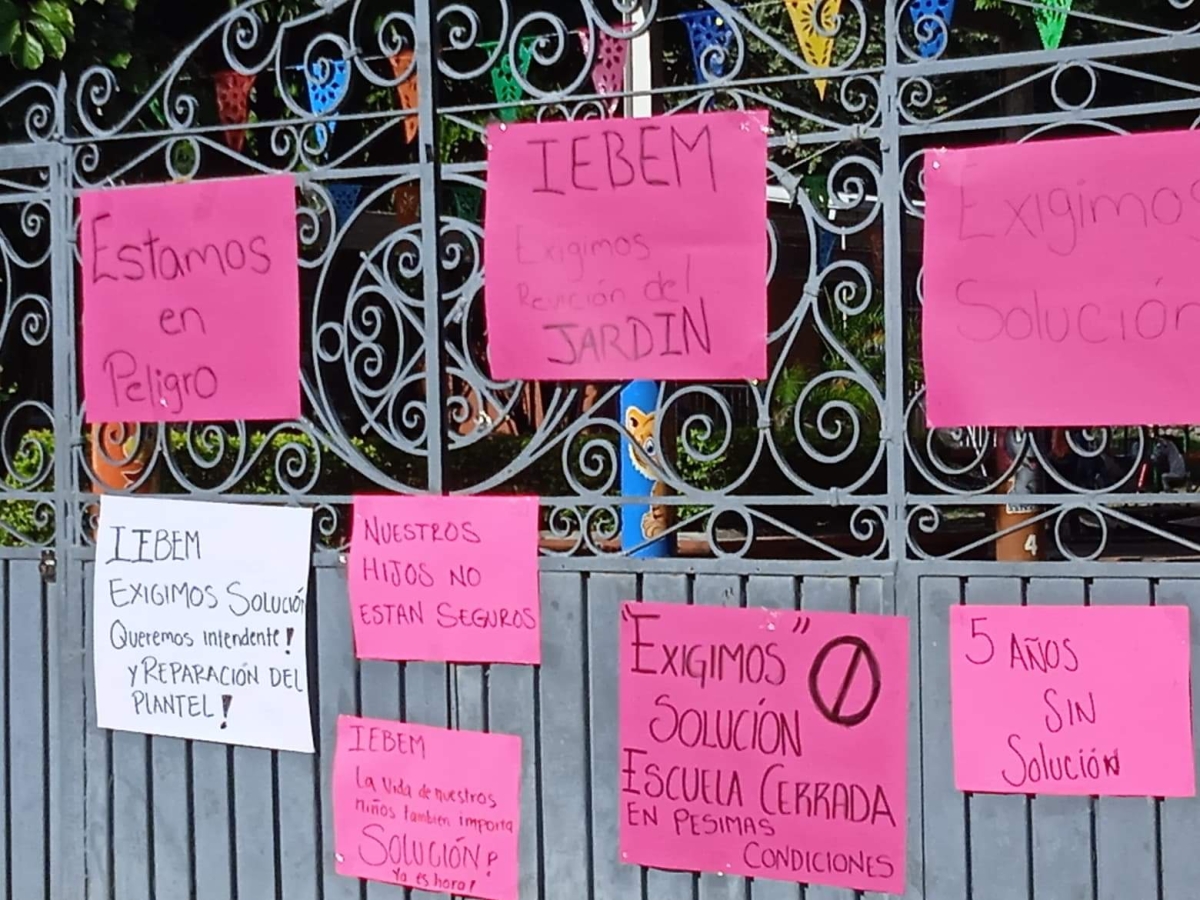 Estamos
en
Peligro
IEBEM
Exigimos
Revición del
JARDIN
Exigimos
Solución
IEBEM
EXIGIMOS SOLUCIÓN
Queremos intendente!
Y REPARACIÓN DEL
PLANTEL!
NUESTROS
HIJOS NO
ESTAN SEGUROS
IEBEM
La Vida de nuestros
niños tambien importa
SOLUCIÓN!
Ya es hora!
"EXIGIMOS"
SOLUCIÓN
ESCUELA CERRADA
EN PESIMAS
CONDICIONES
5 AÑOS
SIN
Solución
4